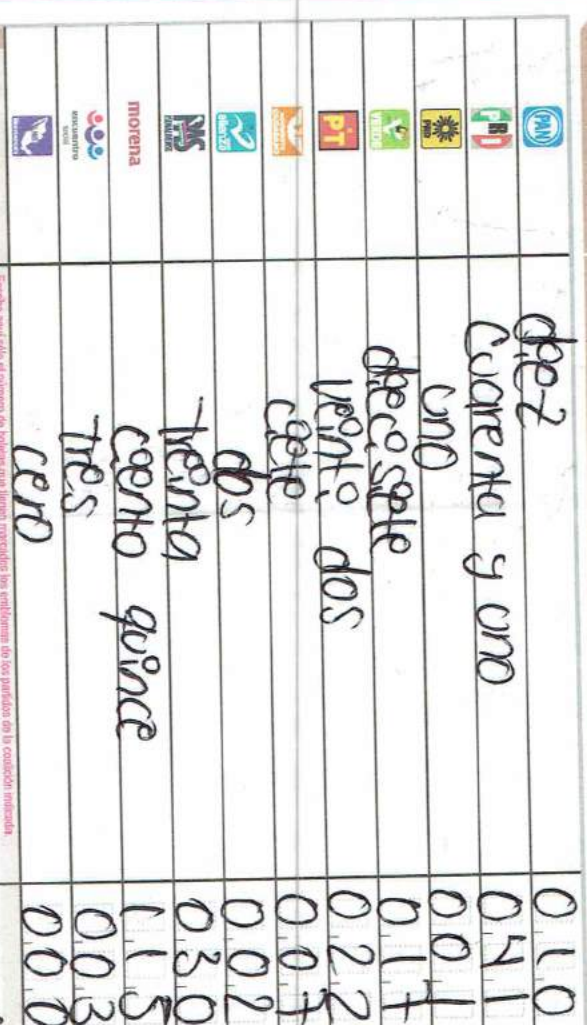 PAN diez 010
PRI cuarenta y uno 041
PRD uno 001
VERDE diecisete 017
PT veinti dos 022
ciete 007
dos 002
treinta 030
morena ciento quince 115
encuentro social tres 003
cero 000
Escriba aquí sólo el número de boletas que tienen marcados los emblemas de los partidos de la coalición indicada.